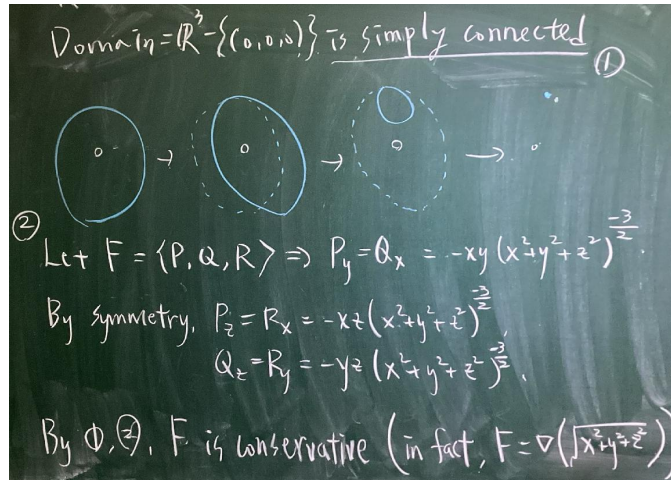 Domain = ℝ³ - {(0,0,0)} is simply connected ①
② Let F = ⟨P, Q, R⟩ ⇒ P_y = Q_x = -xy (x²+y²+z²)^(-3/2).
By symmetry, P_z = R_x = -xz (x²+y²+z²)^(-3/2),
Q_z = R_y = -yz (x²+y²+z²)^(-3/2).
By ①, ②, F is conservative (in fact, F = ∇(√(x²+y²+z²))